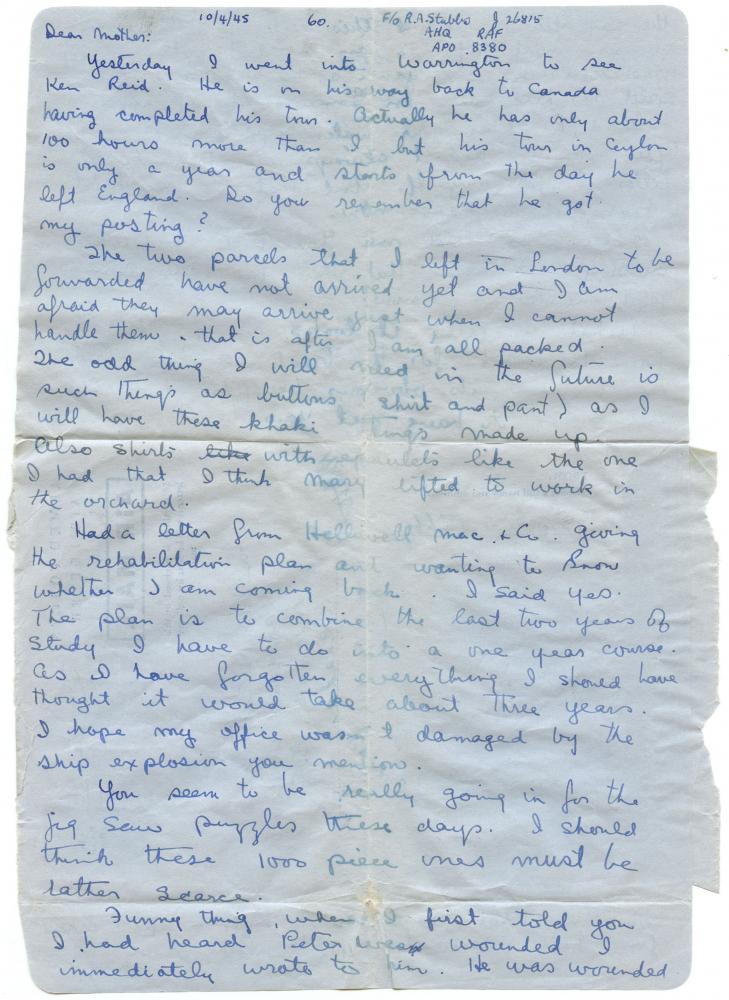 10/4/45 60. F/O R.A. Stubbs J 26815
AHQ RAF
APO 8380
Dear Mother:
Yesterday I went into Warrington to see
Ken Reid. He is on his way back to Canada
having completed his tour. Actually he has only about
100 hours more than I but his tour in Ceylon
is only a year and starts from the day he
left England. Do you remember that he got
my posting?
The two parcels that I left in London to be
forwarded have not arrived yet and I am
afraid they may arrive just when I cannot
handle them. that is after I am all packed.
The odd thing I will need in the future is
such things as buttons (shirt and pant) as I
will have these khaki things made up.
Also shirts like with epaulets like the one
I had that I think Mary lifted to work in
the orchard.
Had a letter from Helliwell Mac. & Co. giving
the rehabilitation plan and wanting to know
whether I am coming back. I said yes.
The plan is to combine the last two years of
study I have to do into a one year course.
As I have forgotten everything I should have
thought it would take about three years.
I hope my office wasn't damaged by the
ship explosion you mention.
You seem to be really going in for the
jig saw puzzles these days. I should
think these 1000 piece ones must be
rather scarce.
Funny thing, when I first told you
I had heard Peter was wounded I
immediately wrote to him. He was wounded